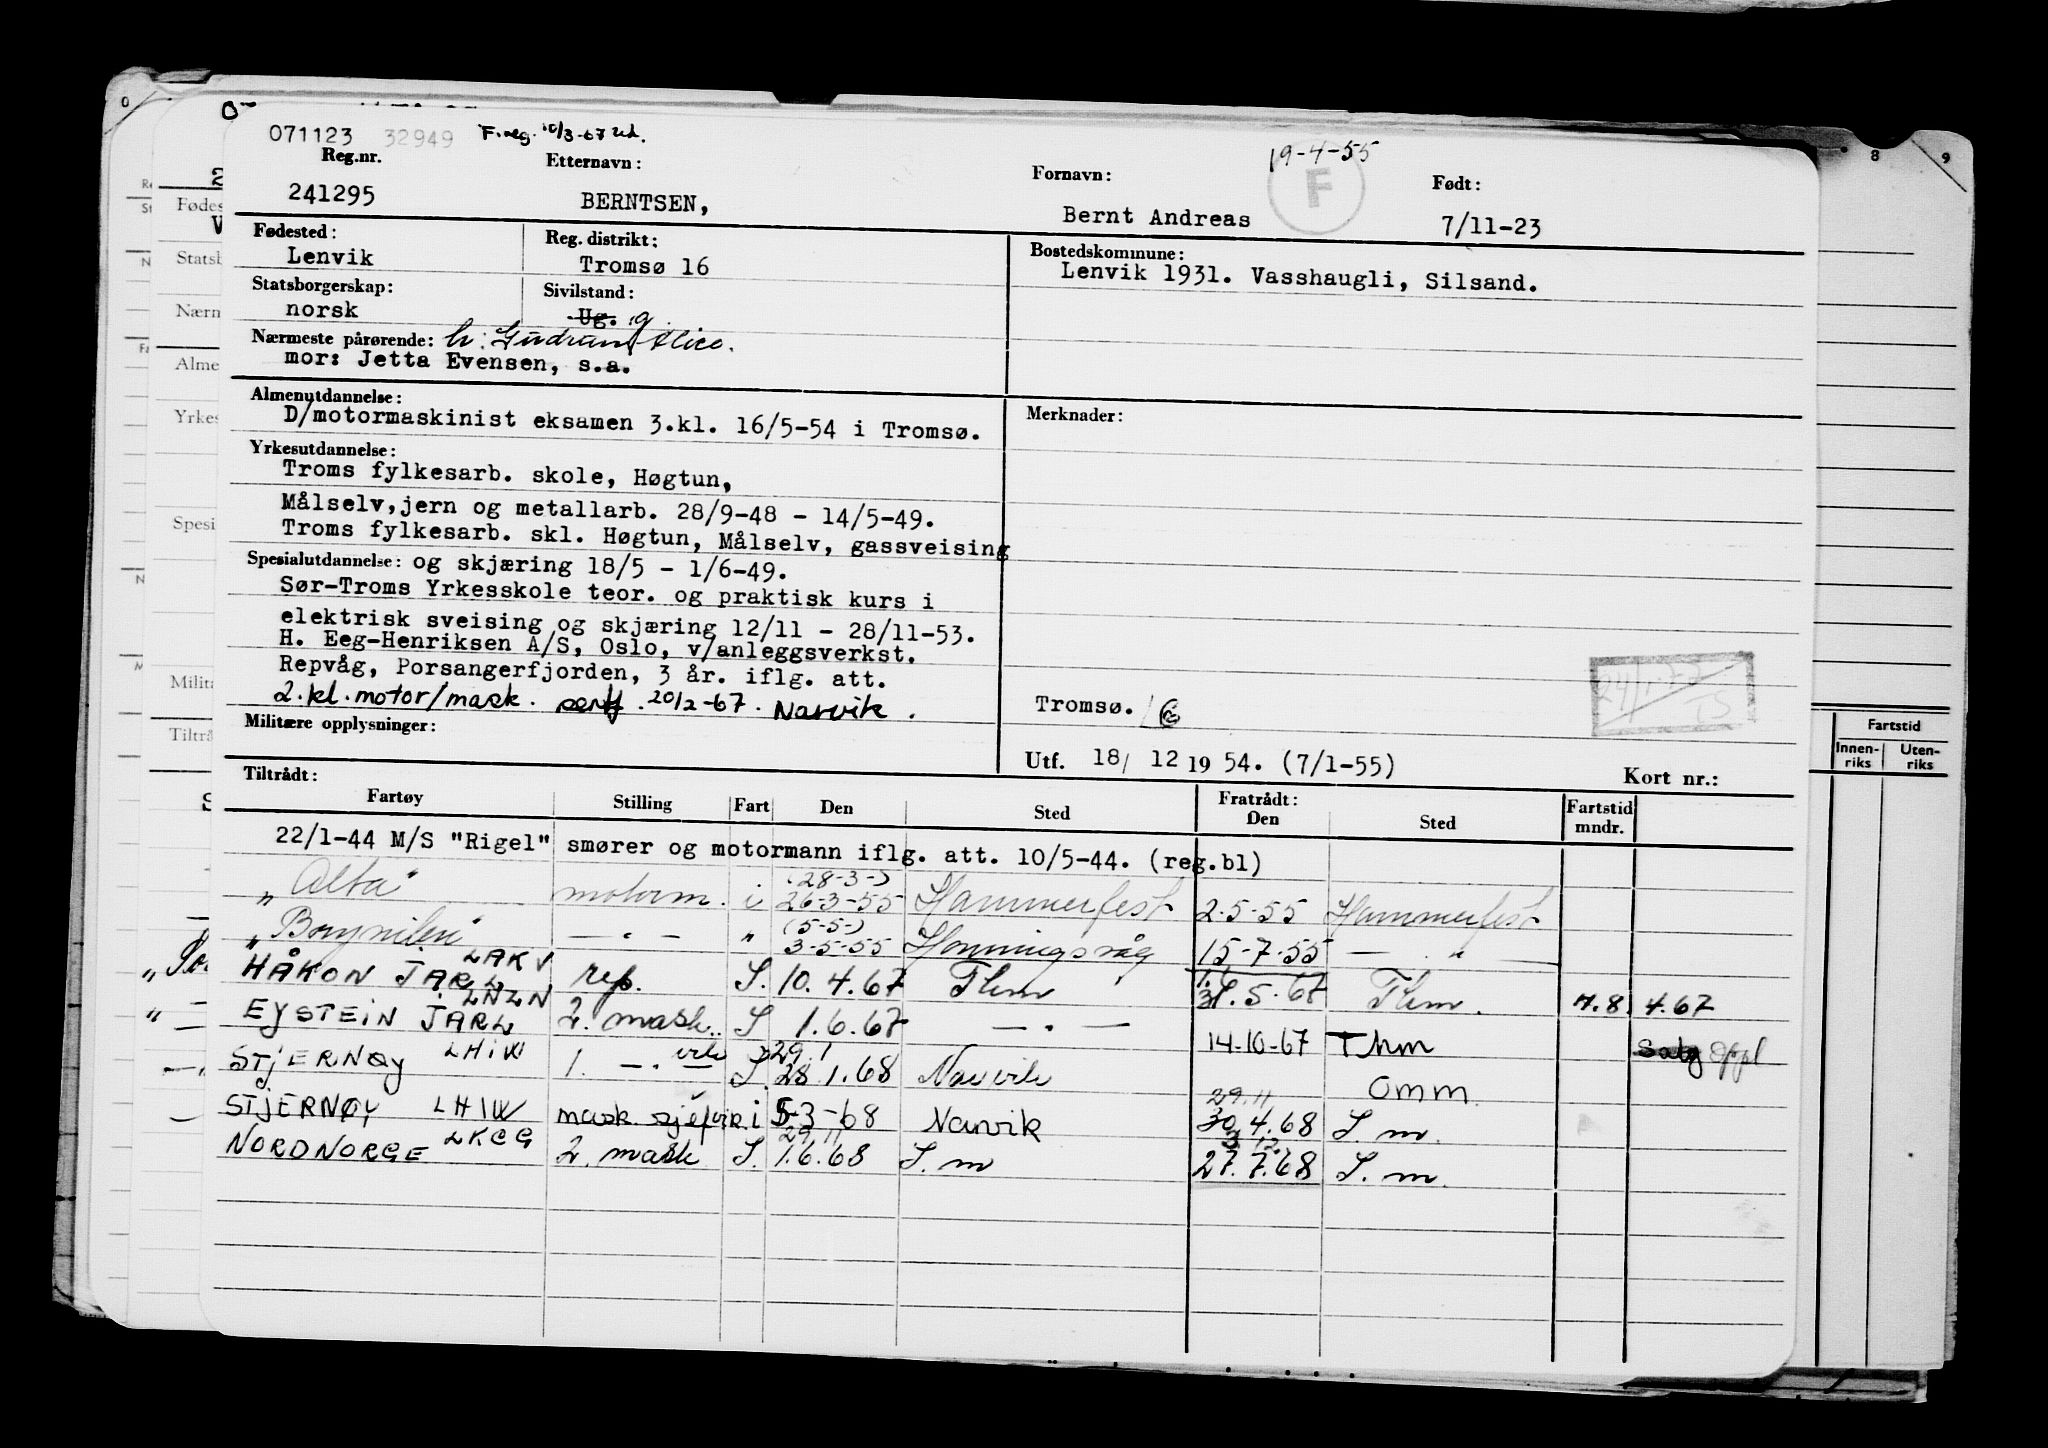 071123 32949 F.reg. 10/3-67
19-4-55
Reg.nr. Etternavn: Fornavn: F Født:
241295 BERNTSEN, Bernt Andreas 7/11-23
Fødested: Reg. distrikt: Bostedskommune:
Lenvik Tromsø 16 Lenvik 1931. Vasshaugli, Silsand.
Statsborgerskap: Sivilstand:
norsk Ug. g
Nærmeste pårørende: h. Gudrun Alice.
mor: Jetta Evensen, s.a.
Almenutdannelse: Merknader:
D/motormaskinist eksamen 3.kl. 16/5-54 i Tromsø.
Yrkesutdannelse:
Troms fylkesarb. skole, Høgtun,
Målselv,jern og metallarb. 28/9-48 - 14/5-49.
Troms fylkesarb. skl. Høgtun, Målselv, gassveising
Spesialutdannelse: og skjæring 18/5 - 1/6-49.
Sør-Troms Yrkesskole teor. og praktisk kurs i
elektrisk sveising og skjæring 12/11 - 28/11-53.
H. Eeg-Henriksen A/S, Oslo, v/anleggsverkst.
Repvåg, Porsangerfjorden, 3 år. iflg. att.
2.kl.motor/mask. sertf. 20/2-67. Narvik.
Tromsø.
Militære opplysninger:
Utf. 18/ 12 19 54. (7/1-55) Kort nr.:
Tiltrådt: Fratrådt:
Fartøy Stilling Fart Den Sted Den Sted Fartstid mndr.
22/1-44 M/S "Rigel" smører og motormann iflg. att. 10/5-44. (reg.bl)
(28-3-)
"Alta" motorm. i 26-3-55 Hammerfest 2-5-55 Hammerfest
(5-5-)
— " — " 3-5-55 Honningsvåg 15-7-55 — " —
HÅKON JARL LAKV rep. S. 10.4.67 Thm 31.5.67 Thm. 4.67
EYSTEIN JARL LNLN 2. mask. S 1.6.67 — " — 14-10-67 Thm Oppl
29.1
STJERNØY LHIW 1. — " — S. 28.1.68 Narvik Omm.
29.11
STJERNØY LHIW mask.sjef vik. i 5-3-68 Narvik 30.4.68 S.m.
29.11 3.12.
NORDNORGE LKCG 2. mask S. 1.6.68 S.m 27.7.68 S.m.
8 9
Fartstid
Innen-riks Uten-riks